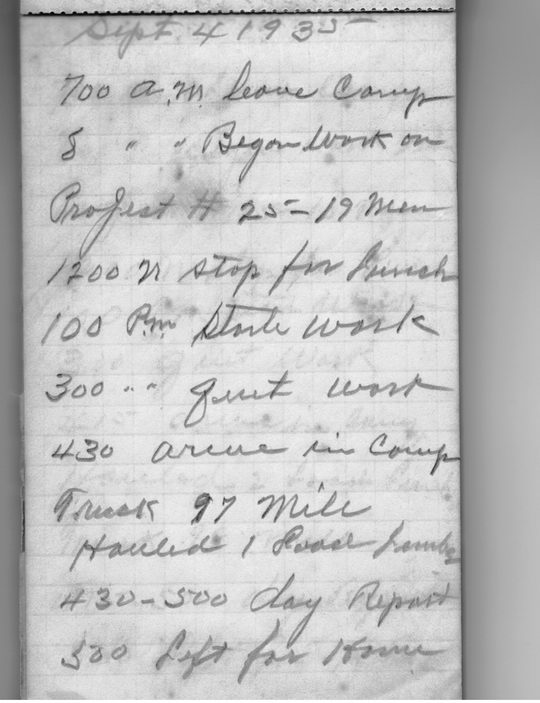 Sept. 4 1935
700 a.m. leave Camp
8 " " Began Work on
Project # 25 - 19 Men
1200 N stop for Lunch
100 P.m. Starte work
300 " " quit work
430 arive in Camp
Truck 97 Mile
Hauled 1 Load
430-500 day Report
500 Left for Home